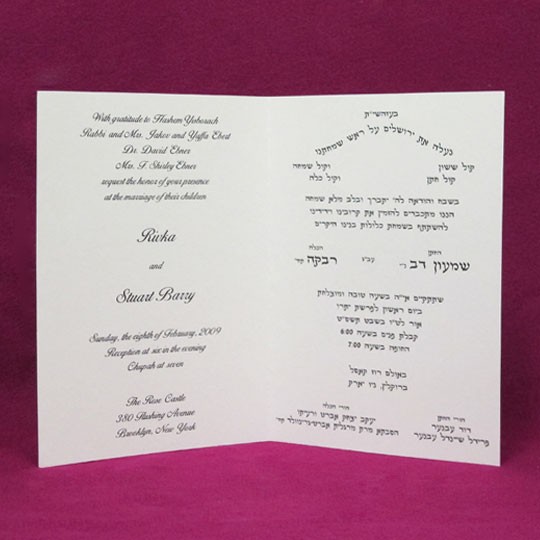 With gratitude to Hashem Yisborach
Rabbi and Mrs. Jakov and Yaffa Ebert
Dr. David Ebner
Mrs. F. Shirley Ebner
request the honor of your presence
at the marriage of their children
Rivka
and
Stuart Barry
Sunday, the eighth of February, 2009
Reception at six in the evening
Chupah at seven
The Rose Castle
380 Flushing Avenue
Brooklyn, New York
בעזהשי״ת
נעלה את ירושלים על ראש שמחתנו
קול ששון וקול שמחה
קול חתן וקול כלה
בשבח והודאה לה׳ יתברך ובלב מלא שמחה
הננו מתכבדים להזמין את קרובינו וידידינו
להשתתף בשמחת כלולות בנינו היקרים
החתן הכלה
שמעון דב עב״ג רבקה
שתתקיים אי״ה בשעה טובה ומוצלחת
ביום ראשון לפרשת יתרו
אור לט״ו בשבט תשס״ט
קבלת פנים בשעה 6:00
החופה בשעה 7:00
באולם רוז קאסל
ברוקלין, ניו יארק
הורי החתן הורי הכלה
דוד עבנער